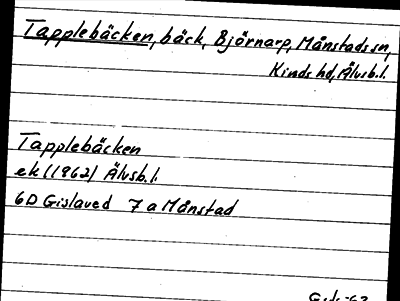 Tapplebäcken, bäck, Björnarp, Månstads sn,
Kinds hd, Älvsb. l.
Tapplebäcken
ek (1962) Älvsb. l.
6D Gislaved 7 a Månstad